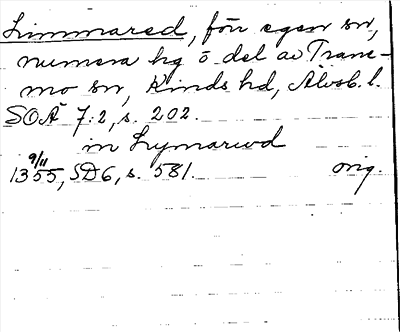 Limmared, förr egen sn,
numera hg ö del av Tran-
mo sn, Kinds hd, Älvsb. l.
SOÄ 7:2, s. 202.
in Lymarwd
9/11
1355, SD6, s. 581. orig.